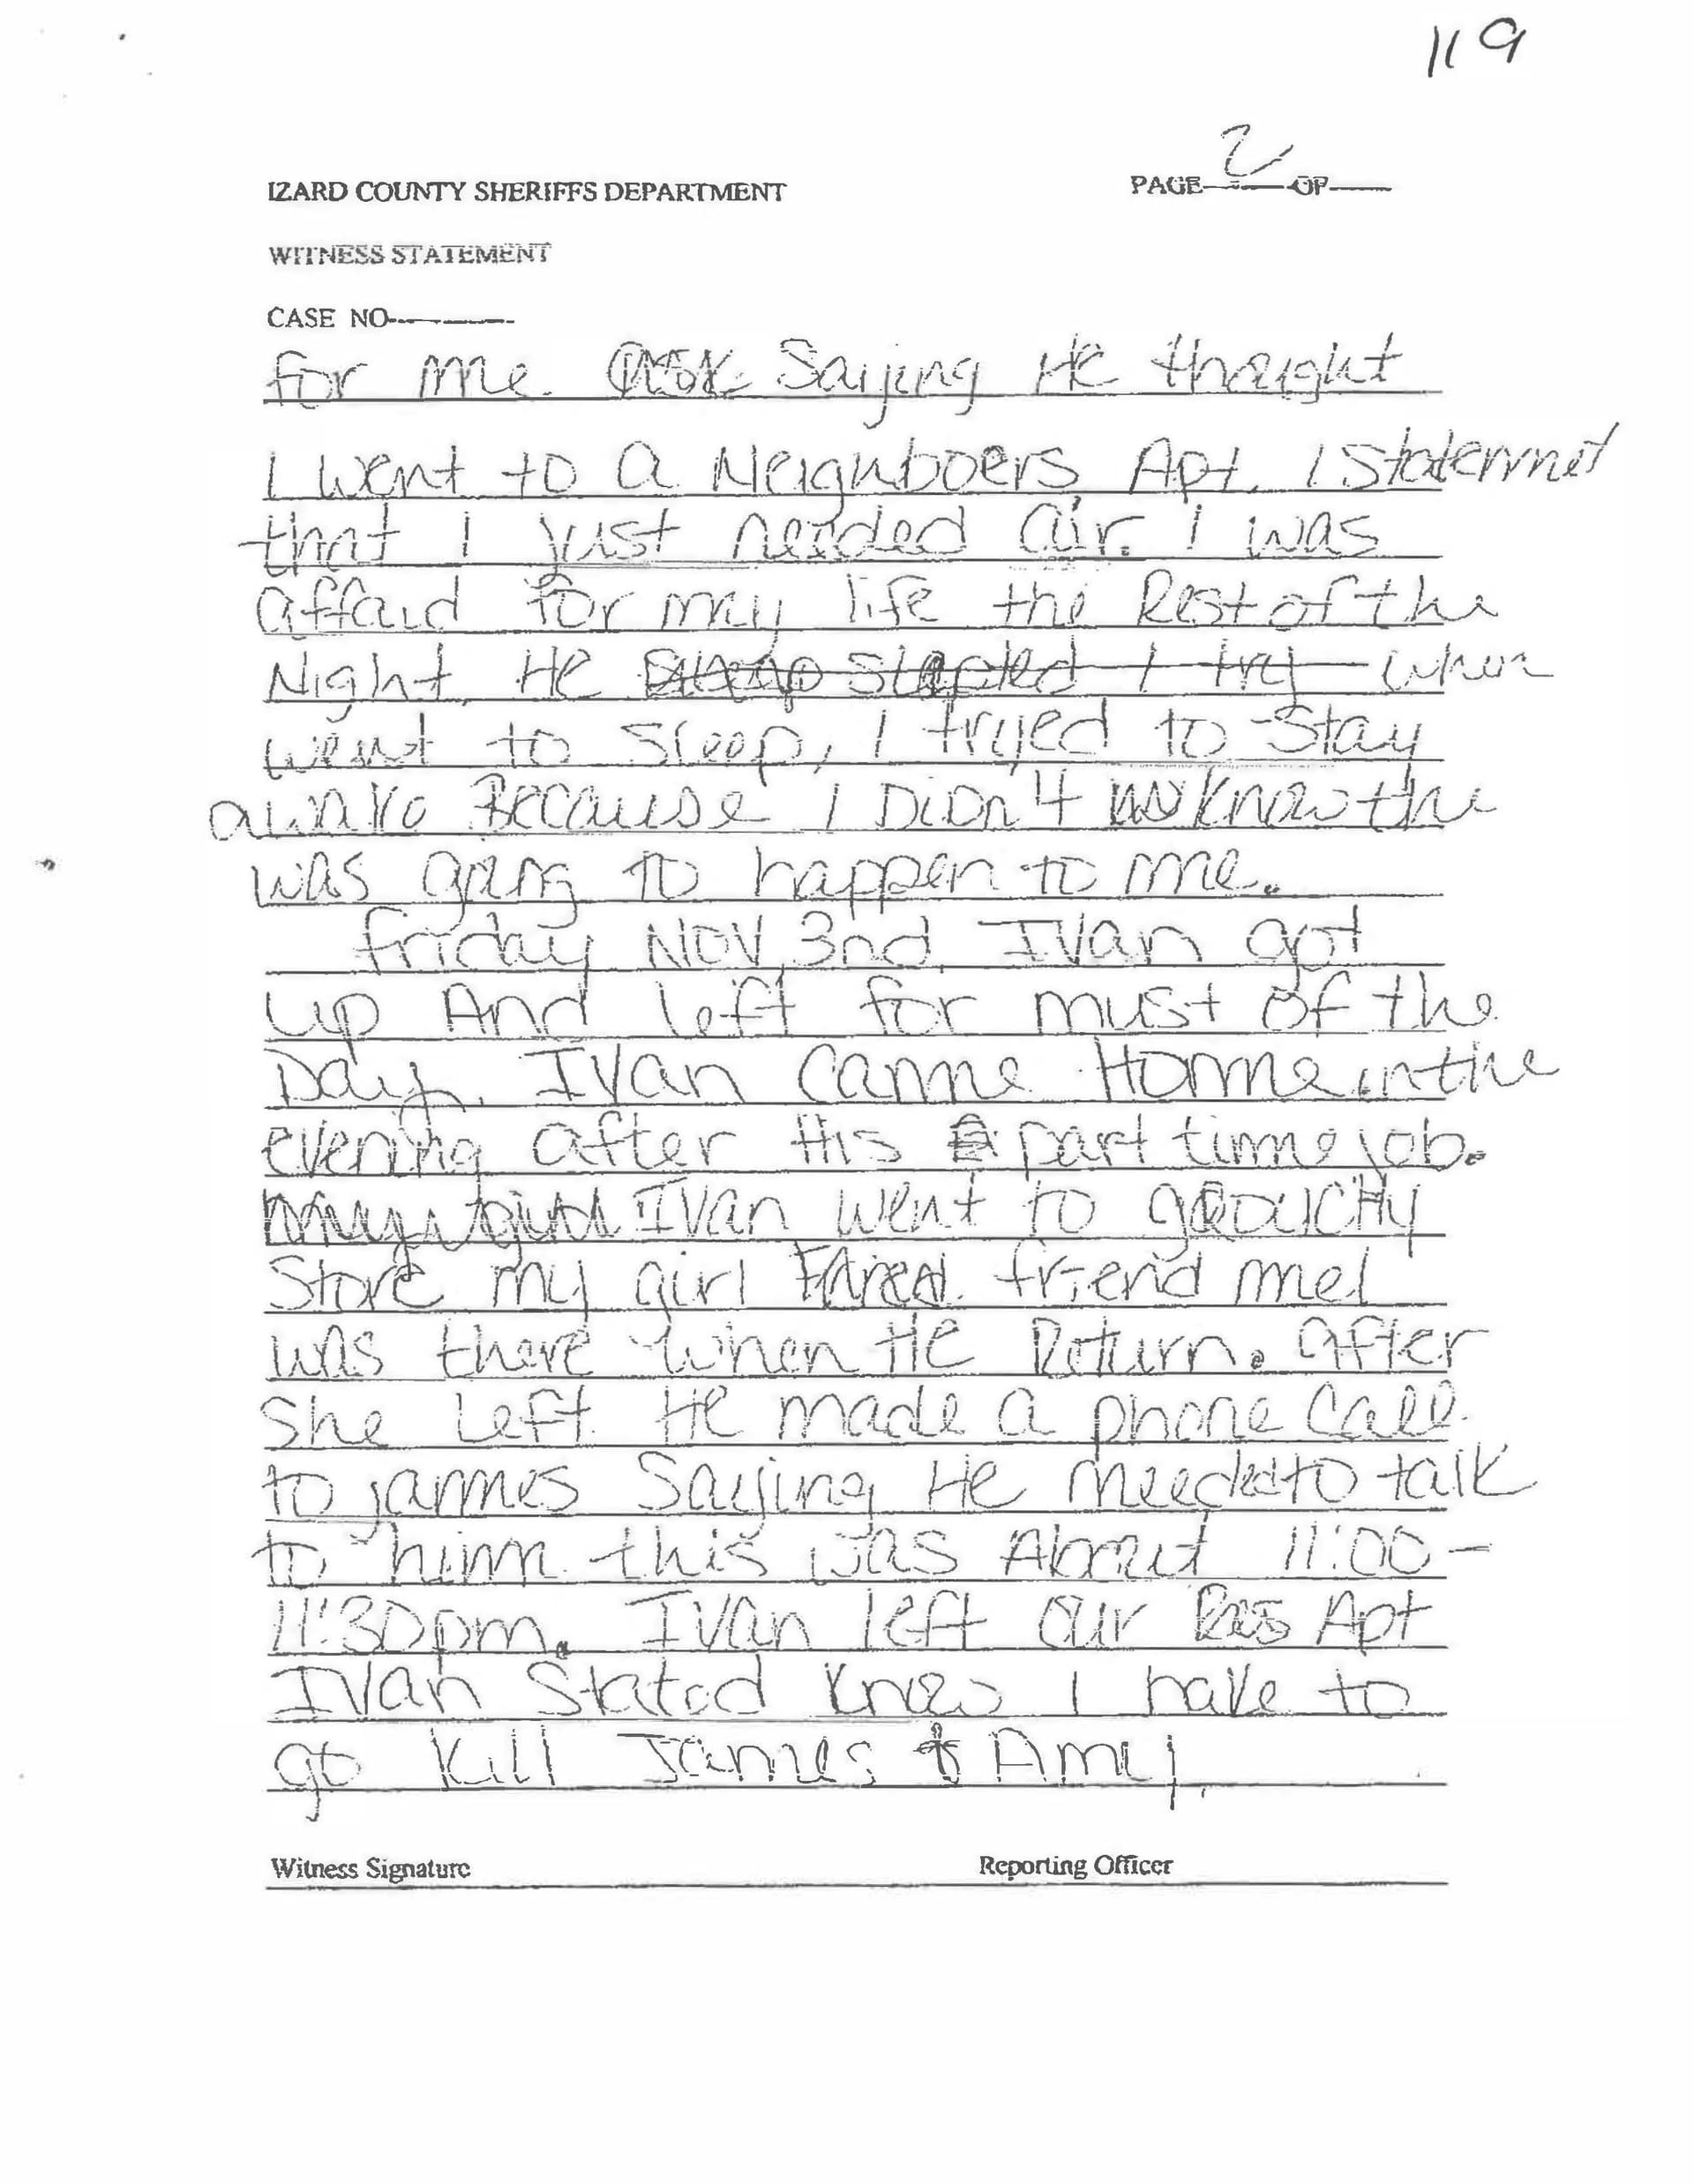 119
IZARD COUNTY SHERIFFS DEPARTMENT
PAGE 2 OF
WITNESS STATEMENT
CASE NO
for me. Saijing He thought
I went to a Neighboers Apt. I Statemnet
that I just needed air. I was
affaid for my life the Rest of the
Night. He slepted I try when
went to sleep, I tryed to stay
awake Because I Didn't know the
was going to happen to me.
friday NOV 3nd, Ivan got
up And left for must of the
Day. Ivan Camme Homme in the
evening after His part timme job.
Ivan went to
Store my girl friend mel
was there when He Return. after
she left. He made a phone Call
to jammes Saijing He needed to talk
to himm this was About 11:00 -
11:30pm. Ivan left our Apt
Ivan Stated Know I have to
go Kill James & Amy.
Witness Signature
Reporting Officer